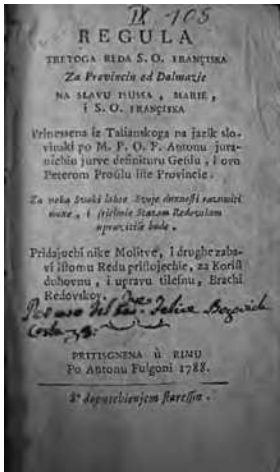 IX - 105
REGULA
TRETOGA REDA S. O. FRANÇISKA
Za Provinciu od Dalmazie
NA SLAVU ISUSA, MARIE,
i S. O. FRANÇISKA
Prinessena iz Talianskoga na jazik slo-
vinski po M. P. O. F. Antonu jura-
nichiu jurve definituru Gen̄lu, i ovo
Peterom Provīlu iste Provincie.
Za neka svaki lahce svoje duxnosti razumiti
moxe, i
upravitise bude.
Pridajuchi nike Molitve, i drughe zaba-
vi istomu Redu pristojechie, za Korist
duhovnu, i upravu tilesnu, Brachi
Redovskoj.
Felice
PRITISGNENA ù RIMU
Po Antonu Fulgoni 1788.
S' dopuschienjem staressin.